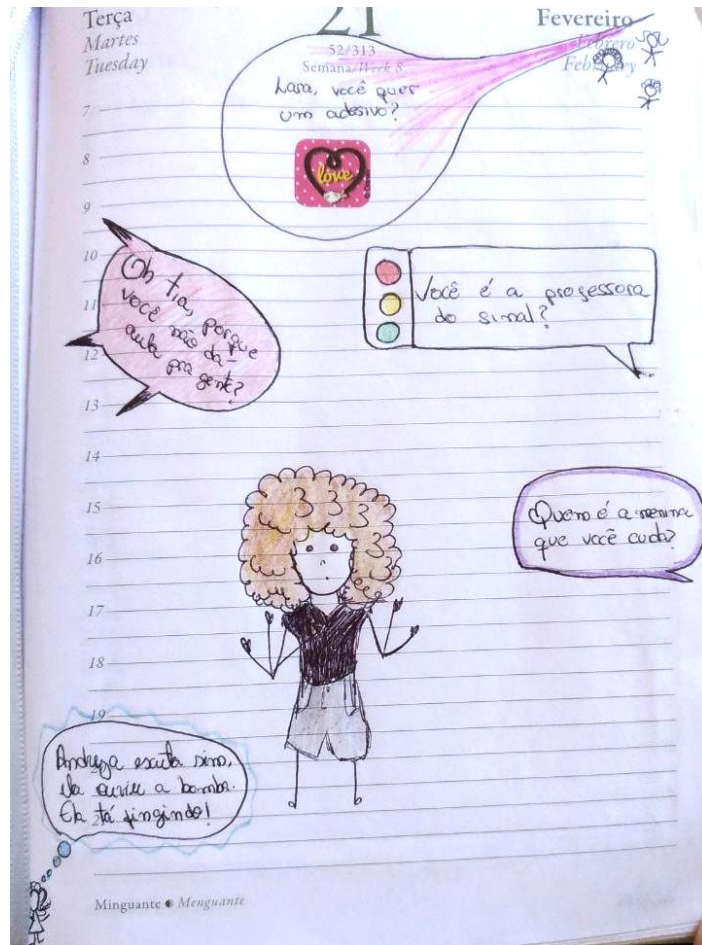 Terça
Martes
Tuesday
21
52/313
Semana/Week 8
Fevereiro
Febrero
February
Lara, você quer
um adesivo?
love
7
8
9
10
11
12
13
14
15
16
17
18
19
Oh tia, porque
você não dá
aula pra gente?
Você é a professora
do sinal?
Quem é a menina
que você cuida?
Andreza escuta sim,
ela ouviu a bomba.
Ela tá fingindo!
Minguante Menguante